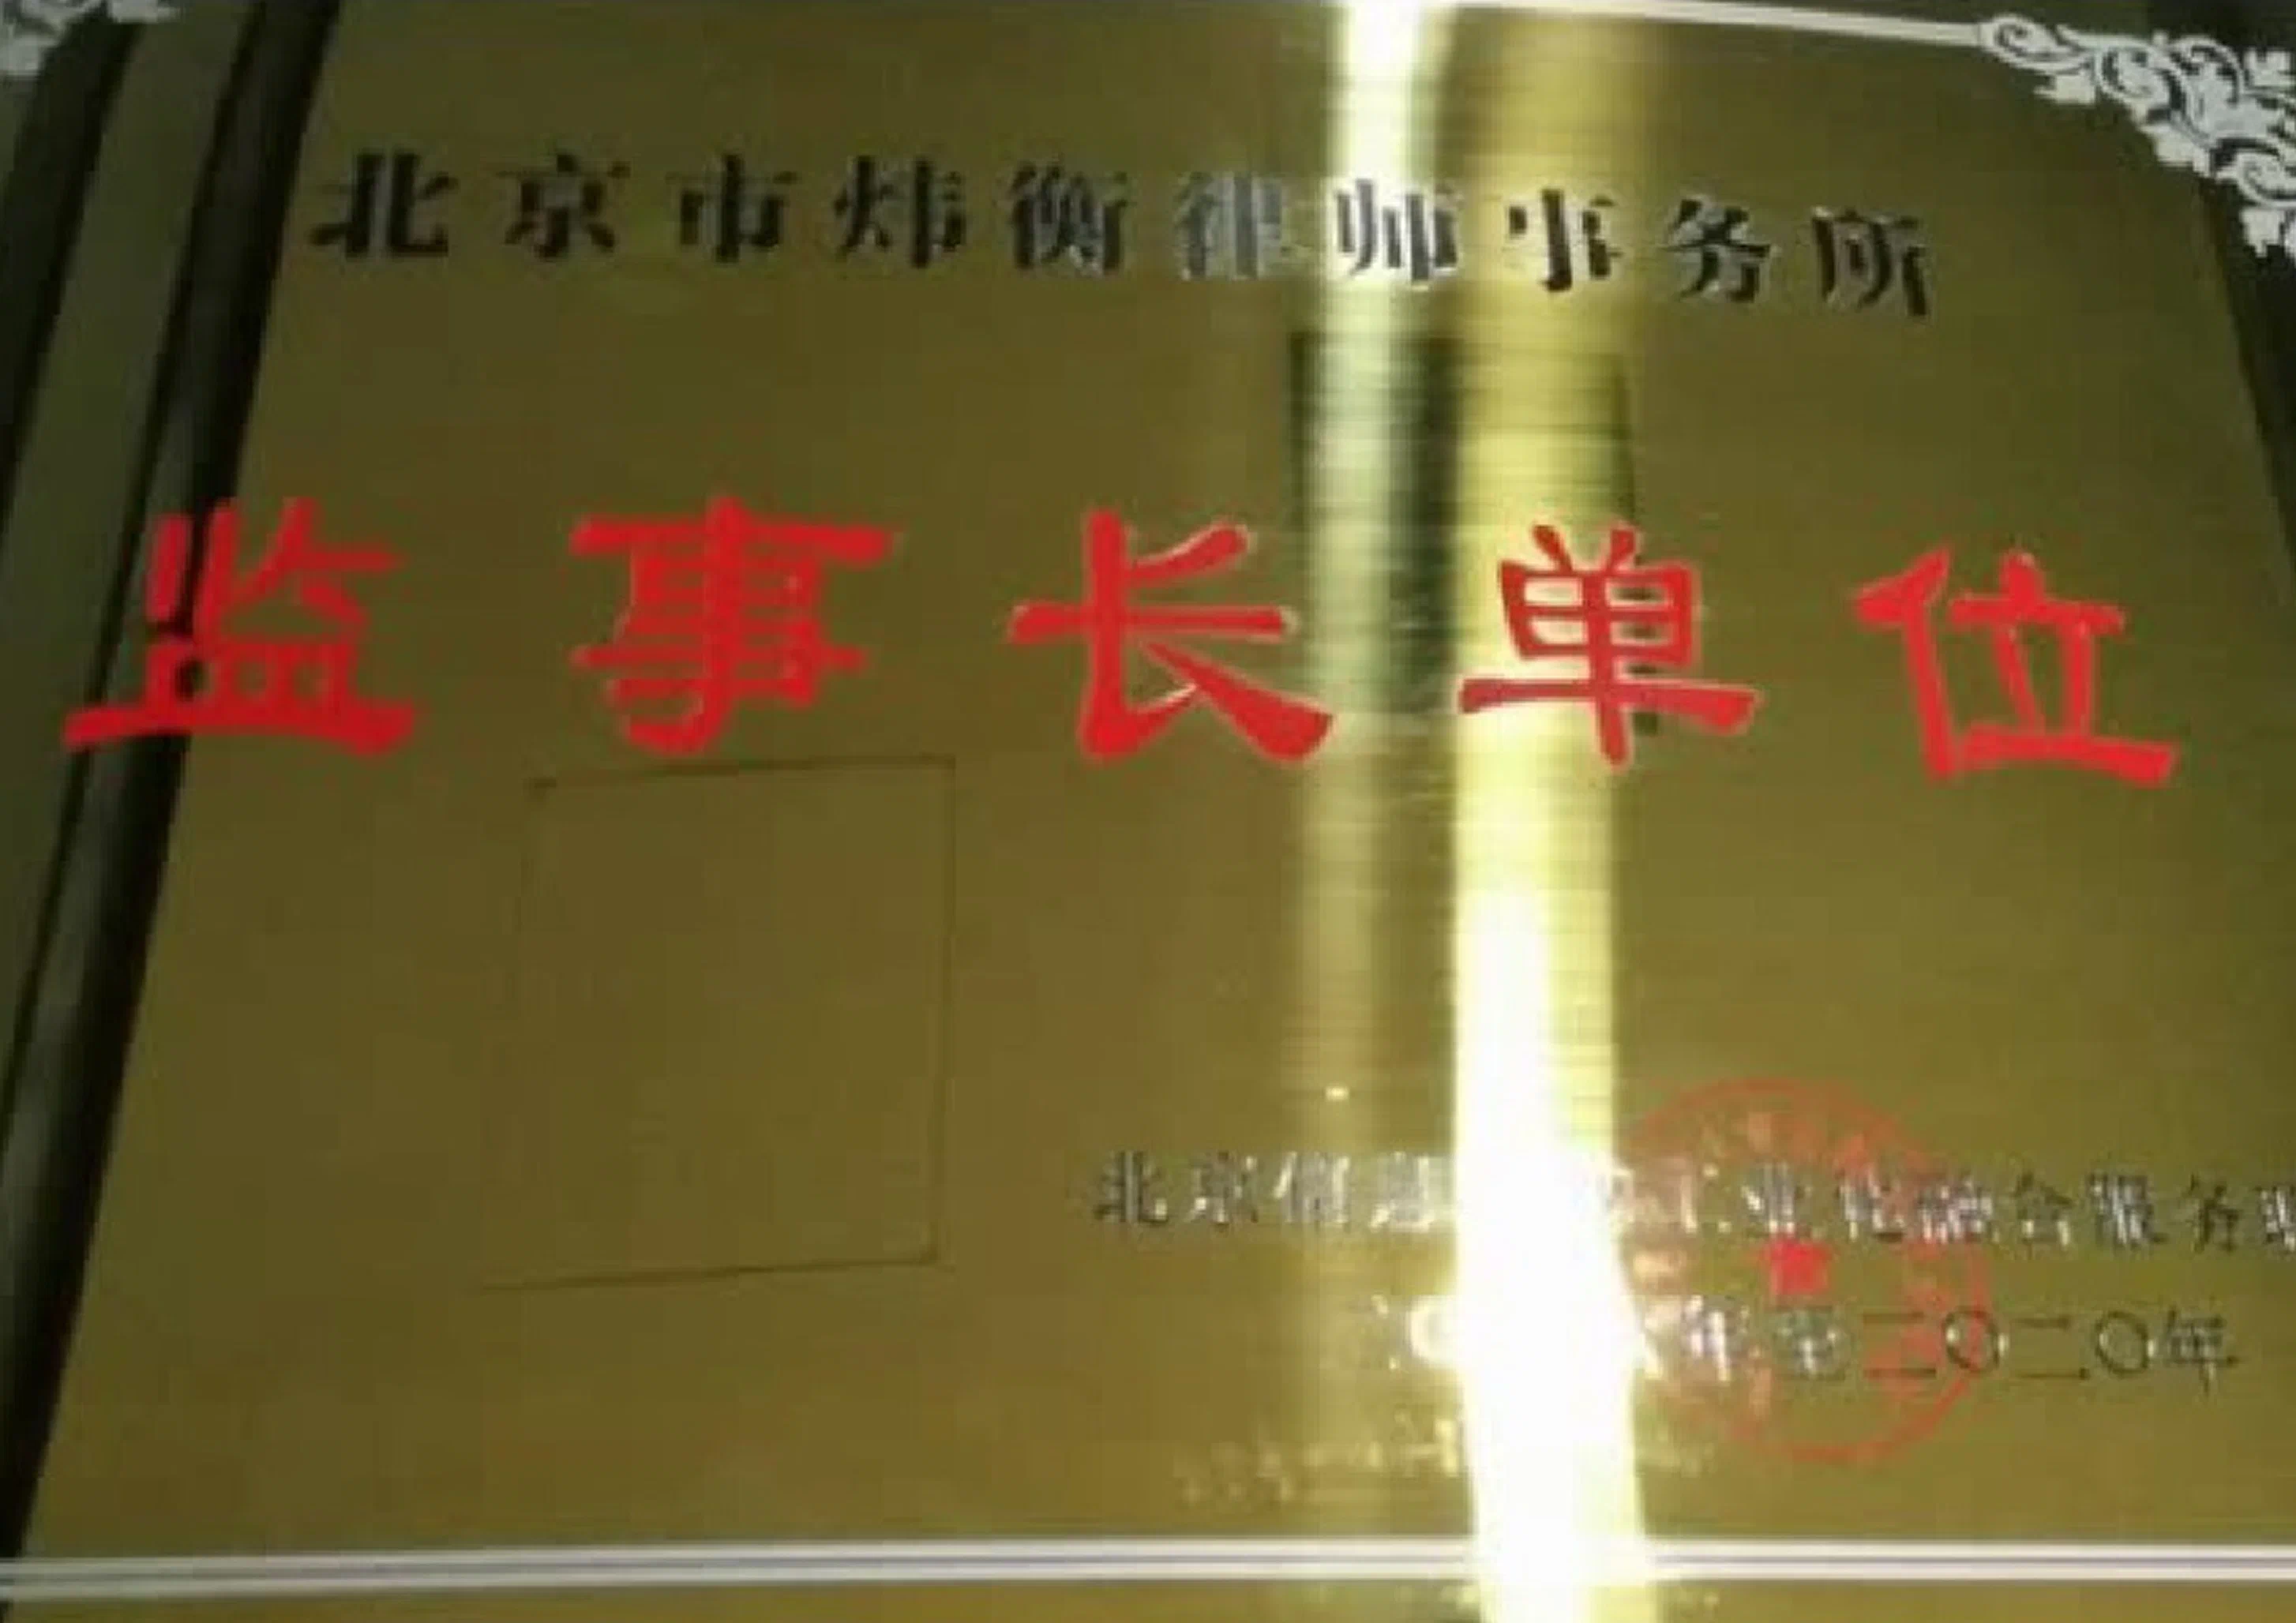 北京市炜衡律师事务所
监事长单位
北京信息 工业化融合服务
年至二〇二〇年